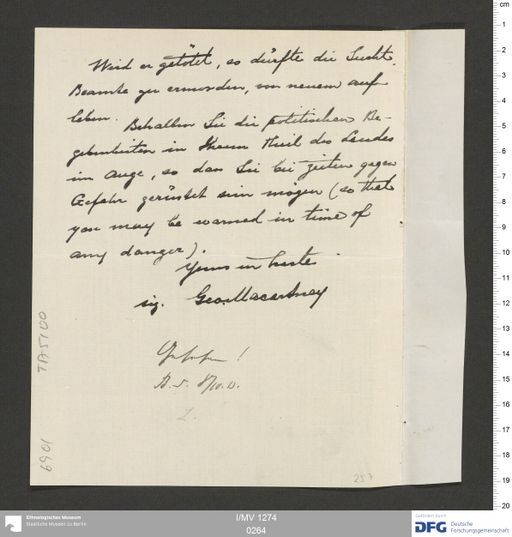 Wird er getötet, so dürfte die Sucht,
Beamte zu ermorden, von neuem auf-
leben. Behalten Sie die politischen Be-
gebenheiten in Ihrem Theil des Landes
im Auge, so dass Sie bei zeiten gegen
Gefahr gerüstet sein mögen (so that
you may be warned in time of
any danger).
Yours in haste
sig. Geo. Macartney
!
TA 5100
6901
257
Ethnologisches Museum
Staatliche Museen zu Berlin
I/MV 1274
0264
gefördert durch
DFG Deutsche
Forschungsgemeinschaft
cm
1
2
3
4
5
6
7
8
9
10
11
12
13
14
15
16
17
18
19
20